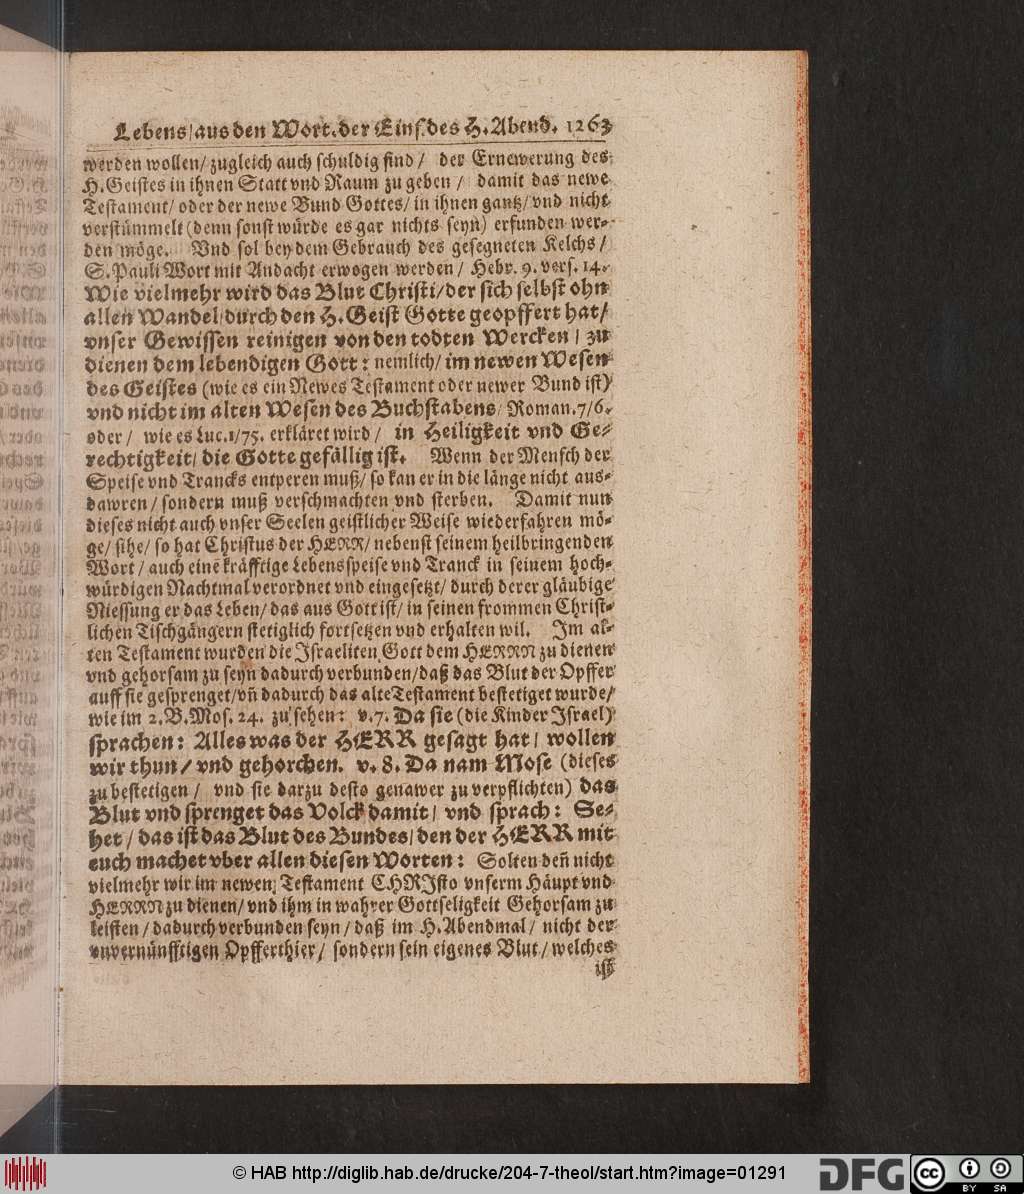 Lebens/aus den Wort.der Eins.des H.Abend. 1263
werden wollen/ zugleich auch schuldig sind/ der Ernewerung des
H.Geistes in ihnen Statt vnd Raum zu geben/ damit das newe
Testament/ oder der newe Bund Gottes/ in ihnen gantz/ vnd nicht
verstümmelt (denn sonst würde es gar nichts seyn) erfunden wer-
den möge. Vnd sol bey dem Gebrauch des gesegneten Kelchs/
S.Pauli Wort mit Andacht erwogen werden/ Hebr. 9. vers. 14.
Wie vielmehr wird das Blut Christi/der sich selbst ohn
allen Wandel/durch den H.Geist Gotte geopffert hat/
vnser Gewissen reinigen von den todten Wercken/ zu
dienen dem lebendigen Gott: nemlich/ im newen Wesen
des Geistes (wie es ein Newes Testament oder newer Bund ist)
vnd nicht im alten Wesen des Buchstabens/ Roman.7/6.
oder/ wie es Luc.1/75. erkläret wird/ in Heiligkeit vnd Ge-
rechtigkeit/ die Gotte gefällig ist. Wenn der Mensch der
Speise vnd Trancks entperen muß/ so kan er in die länge nicht aus-
dawren/ sondern muß verschmachten vnd sterben. Damit nun
dieses nicht auch vnser Seelen geistlicher Weise wiederfahren mö-
ge/ sihe/ so hat Christus der HERR/ nebenst seinem heilbringenden
Wort/ auch eine kräfftige Lebensspeise vnd Tranck in seinem hoch-
würdigen Nachtmal verordnet vnd eingesetzt/ durch derer gläubige
Niessung er das Leben/ das aus Gott ist/ in seinen frommen Christ-
lichen Tischgängern stetiglich fortsetzen vnd erhalten wil. Im al-
ten Testament wurden die Israeliten Gott dem HERRN zu dienen
vnd gehorsam zu seyn dadurch verbunden/ daß das Blut der Opffer
auff sie gesprenget/ vñ dadurch das alte Testament bestetiget wurde/
wie im 2.B.Mos. 24. zu sehen: v.7. Da sie (die Kinder Israel)
sprachen: Alles was der HERR gesagt hat/ wollen
wir thun/ vnd gehorchen. v. 8. Da nam Mose (dieses
zu bestetigen/ vnd sie darzu desto genawer zu verpflichten) das
Blut vnd sprenget das Volck damit/ vnd sprach: Se-
het/ das ist das Blut des Bundes/ den der HERR mit
euch machet vber allen diesen Worten: Solten deñ nicht
vielmehr wir im newen Testament CHRJsto vnserm Häupt vnd
HERRN zu dienen/ vnd ihm in wahrer Gottseligkeit Gehorsam zu
leisten/ dadurch verbunden seyn/ daß im H.Abendmal/ nicht der
vnvernünfftigen Opfferthier/ sondern sein eigenes Blut/ welches
ist
© HAB http://diglib.hab.de/drucke/204-7-theol/start.htm?image=01291
DFG
cc BY SA